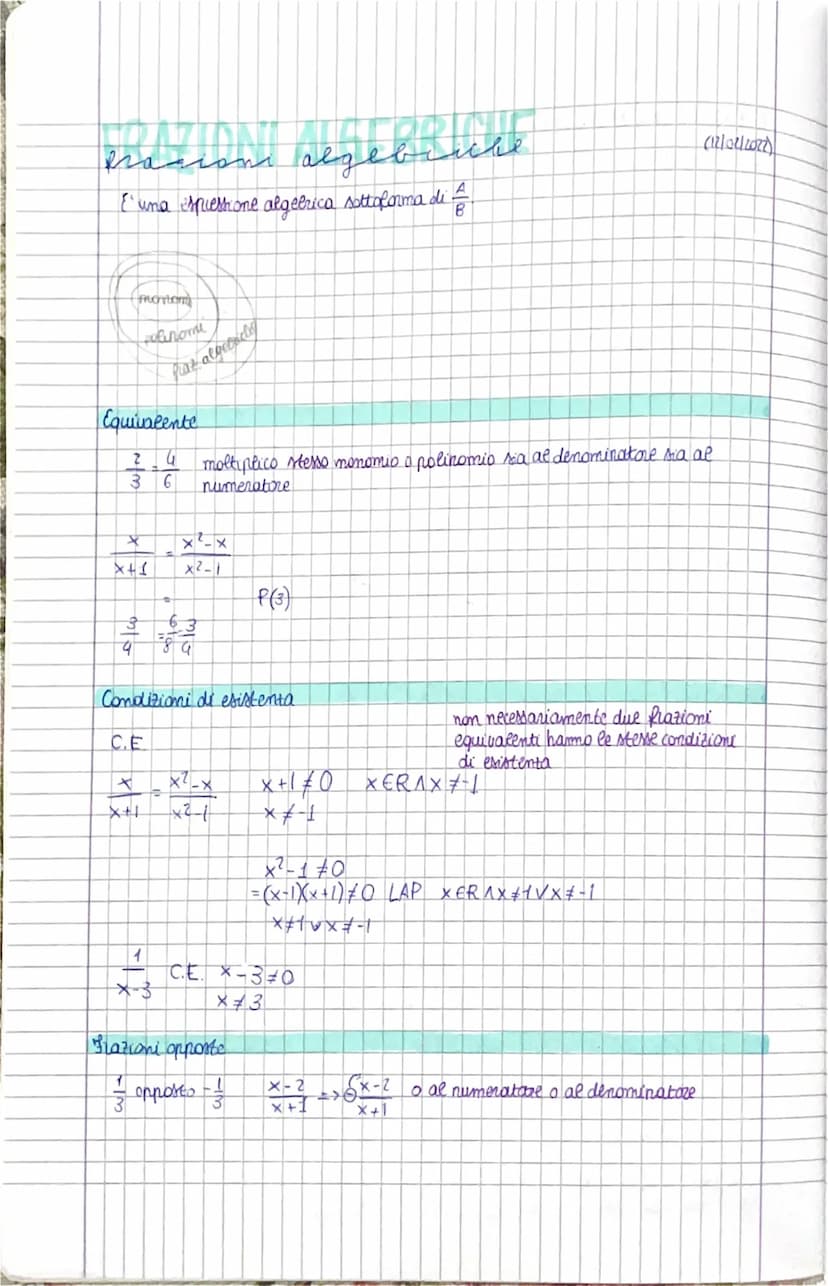 FRAZIONI ALGEBRICHE
frazioni algebriche
(12/02/2022)
E' una espressione algebrica sottoforma di A/B
monomi
polinomi
fraz. algebriche
Equivalente
2/3 = 4/6 moltiplico stesso monomio o polinomio sia al denominatore sia al
numeratore
x/(x+1) = (x²-x)/(x²-1)
= P(3)
3/4 = 6/8 = 3/4
Condizioni di esistenta
non necessariamente due frazioni
C.E equivalenti hanno le stesse condizioni
di esistenta
x/(x+1) = (x²-x)/(x²-1) x+1≠0 x∈R∧x≠-1
x≠-1
x²-1≠0
=(x-1)(x+1)≠0 LAP x∈R∧x≠1∨x≠-1
x≠1∨x≠-1
1/(x-3) C.E. x-3≠0
x≠3
Frazioni opposte
1/3 opposto -1/3 (x-2)/(x+1) => ⊖(x-2)/(x+1) o al numeratore o al denominatore